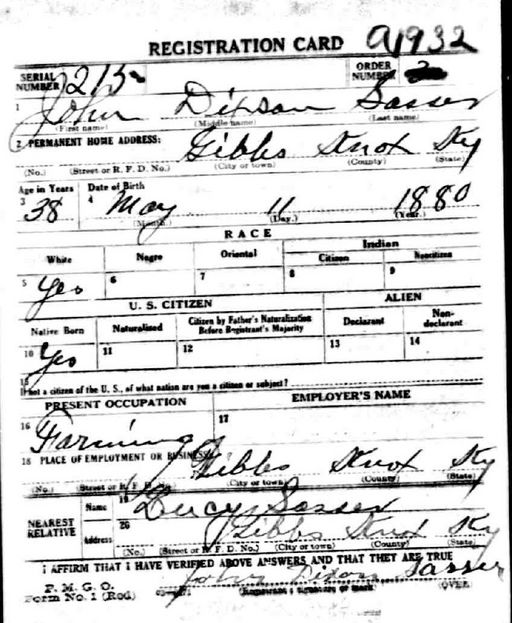 REGISTRATION CARD A1932
SERIAL NUMBER 1215 ORDER NUMBER
1 John Dixson Sasser
(First name) (Middle name) (Last name)
2 PERMANENT HOME ADDRESS: Gibbs Knox Ky
(No.) (Street or R. F. D. No.) (City or town) (County) (State)
Age in Years Date of Birth
3 38 4 May 11 1880
(Month.) (Day.) (Year.)
RACE
White Negro Oriental Indian
Citizen Noncitizen
5 Yes 6 7 8 9
U. S. CITIZEN ALIEN
Native Born Naturalized Citizen by Father's Naturalization Before Registrant's Majority Declarant Non-declarant
10 Yes 11 12 13 14
15 If not a citizen of the U. S., of what nation are you a citizen or subject?
PRESENT OCCUPATION EMPLOYER'S NAME
16 Farming 17
18 PLACE OF EMPLOYMENT OR BUSINESS: Gibbs Knox Ky
(No.) (Street or R. F. D. No.) (City or town) (County) (State)
NEAREST RELATIVE Name 19 Sasser
Address 20 Gibbs Knox Ky
(No.) (Street or R. F. D. No.) (City or town) (County) (State)
I AFFIRM THAT I HAVE VERIFIED ABOVE ANSWERS AND THAT THEY ARE TRUE
P. M. G. O. John Dixon Sasser
Form No. 1 (Red) (Registrant's signature or mark) (OVER)